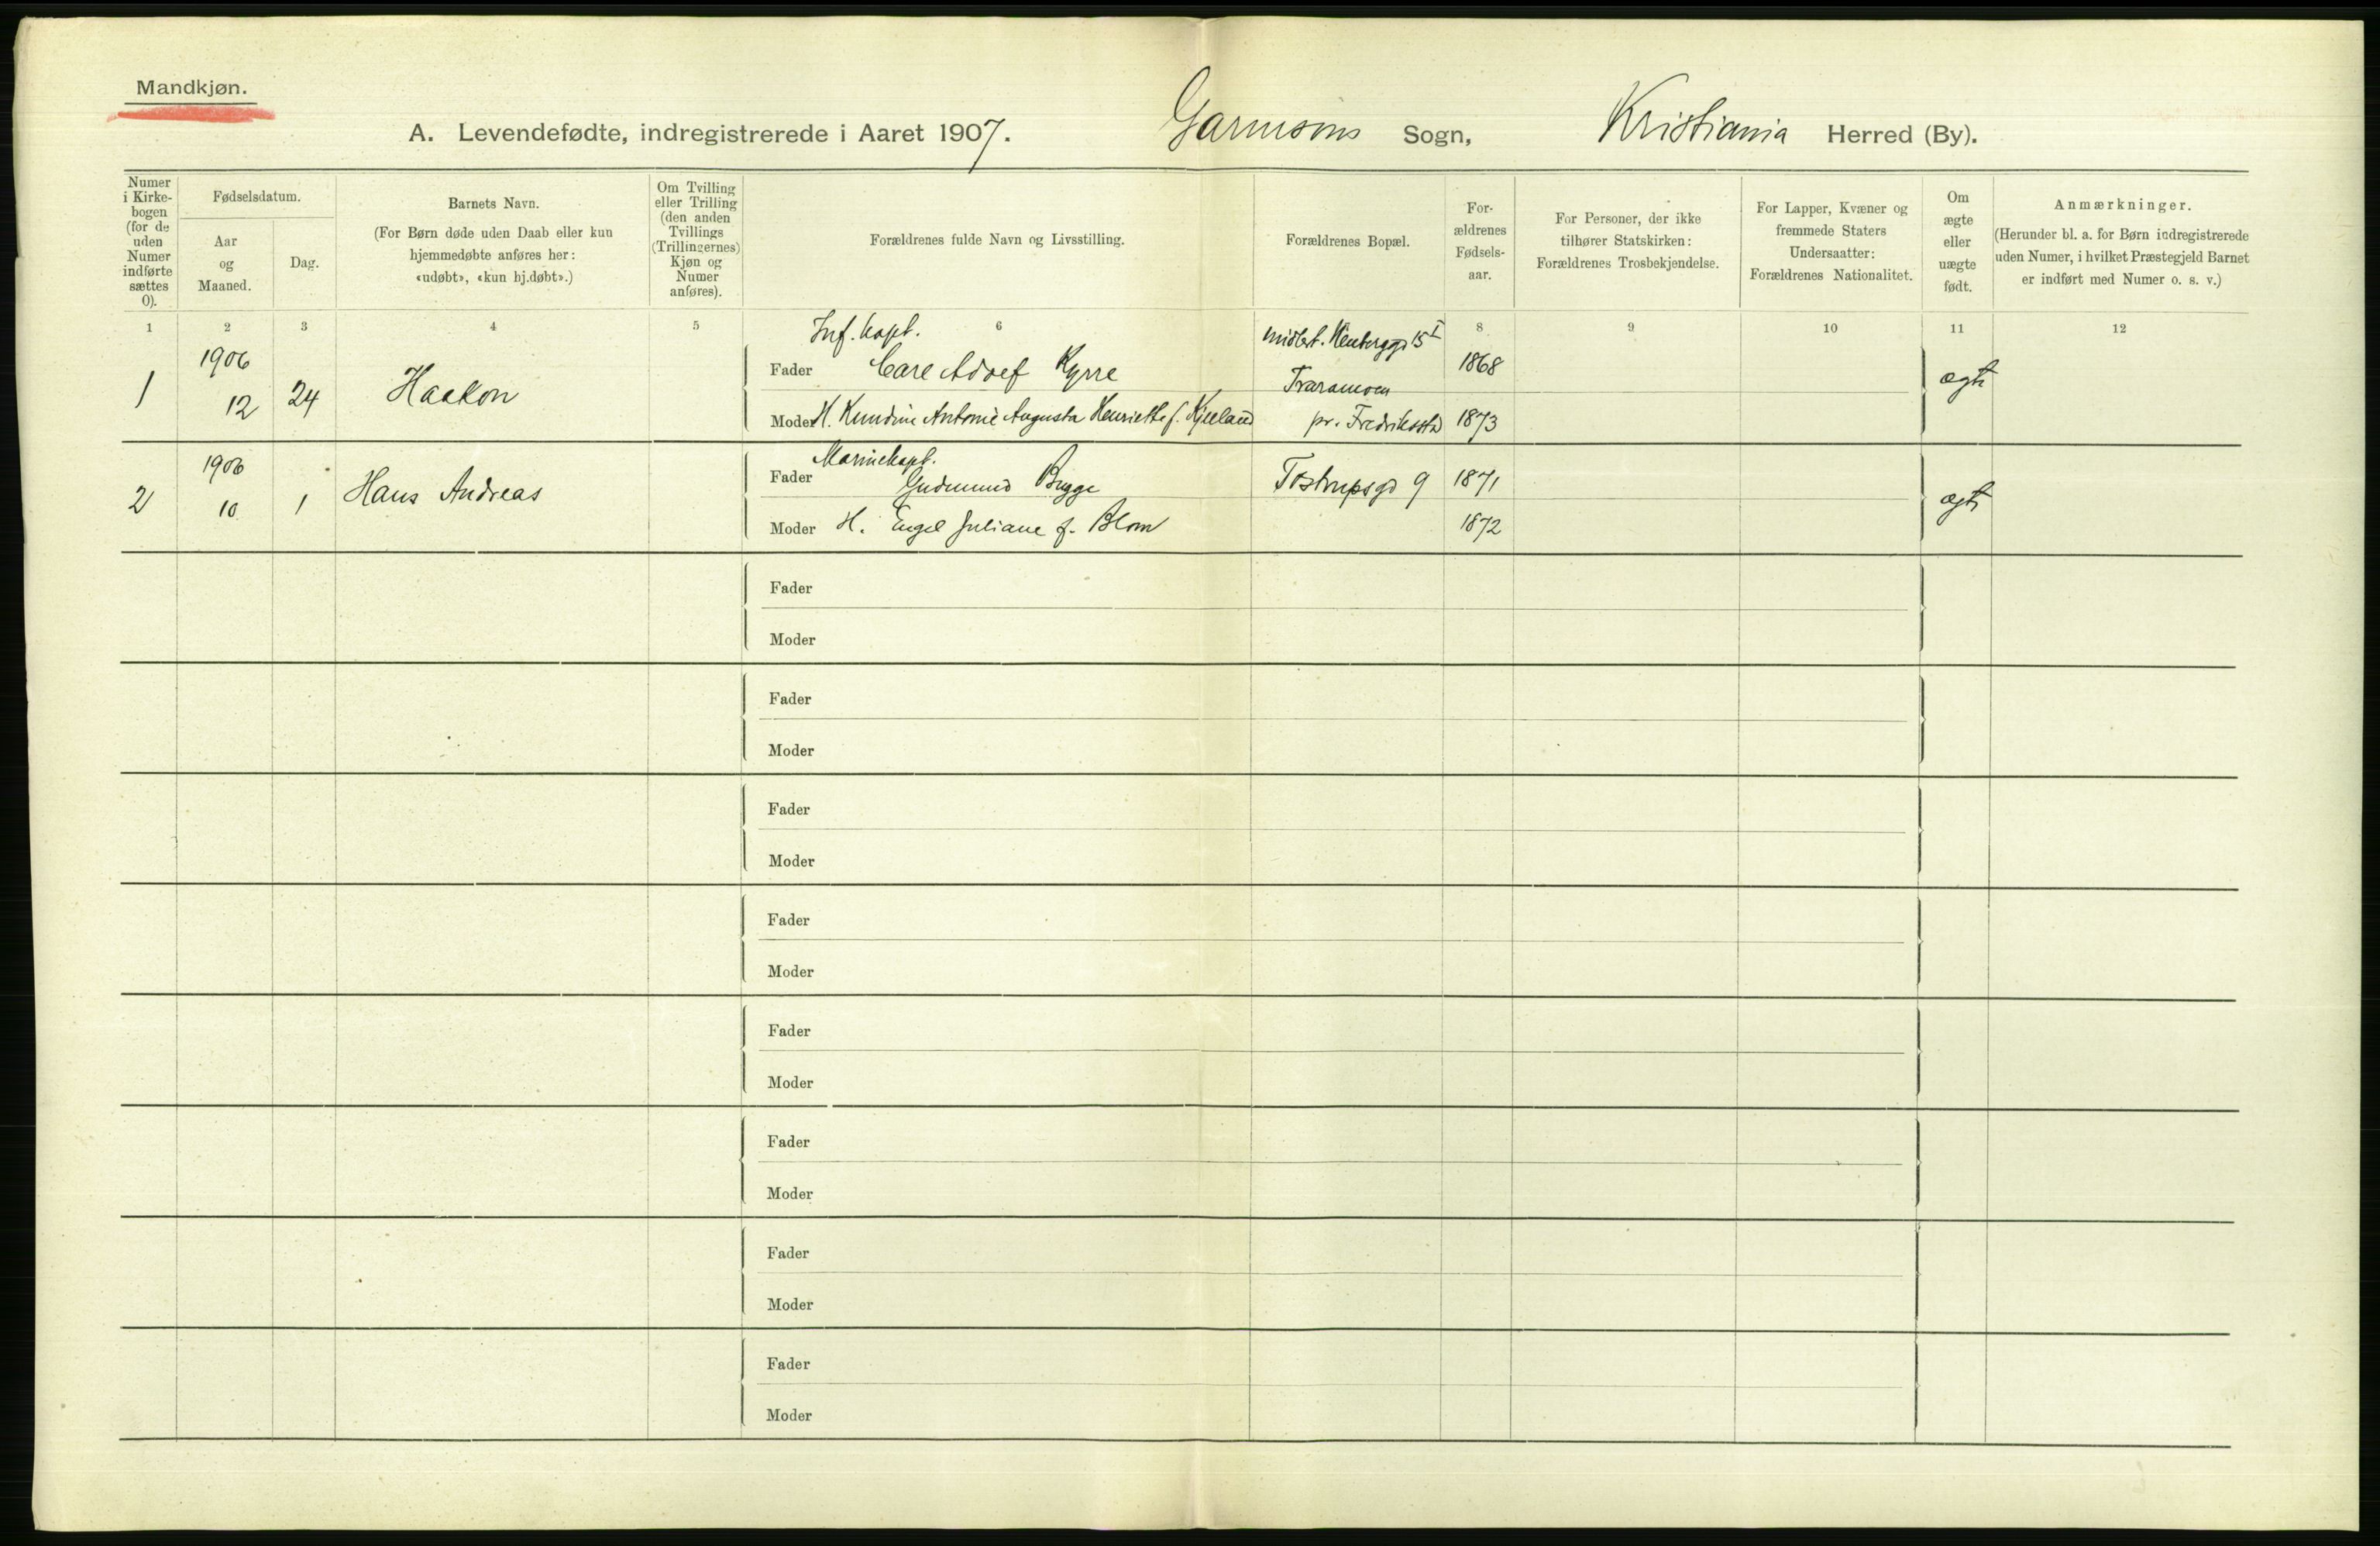 Mandkjøn.
A. Levendefødte, indregistrerede i Aaret 1907. Garnisons Sogn, Kristiania Herred (By).
Numer i Kirkebogen (for de uden Numer indførte sættes 0).
Fødselsdatum.
Aar og Maaned.
Dag.
Barnets Navn.
(For Børn døde uden Daab eller kun
hjemmedøbte anføres her:
«udøbt», «kun hj.døbt».)
Om Tvilling
eller Trilling
(den anden
Tvillings
(Trillingernes)
Kjøn og
Numer
anføres).
Forældrenes fulde Navn og Livsstilling.
Forældrenes Bopæl.
For-
ældrenes
Fødsels-
aar.
For Personer, der ikke
tilhører Statskirken:
Forældrenes Trosbekjendelse.
For Lapper, Kvæner og
fremmede Staters
Undersaatter:
Forældrenes Nationalitet.
Om
ægte
eller
uægte
født.
Anmærkninger.
(Herunder bl. a. for Børn indregistrerede
uden Numer, i hvilket Præstegjeld Barnet
er indført med Numer o. s. v.)
1 2 3 4 5 6 8 9 10 11 12
Inf. kapt. midlert. 15 I
1906 Fader Carl Adolf Kyrre 1868
1 12 24 Haakon ægte
Moder H. Antonie Augusta Henriette f. Kjelland pr. Fredriksstad 1873
1906 Marinekapt.
Fader Gudmund Bugge Tostrupsgd 9 1871
2 10 1 Hans Andreas ægte
Moder H. Engel Juliane f. Blom 1872
Fader
Moder
Fader
Moder
Fader
Moder
Fader
Moder
Fader
Moder
Fader
Moder
Fader
Moder
Fader
Moder